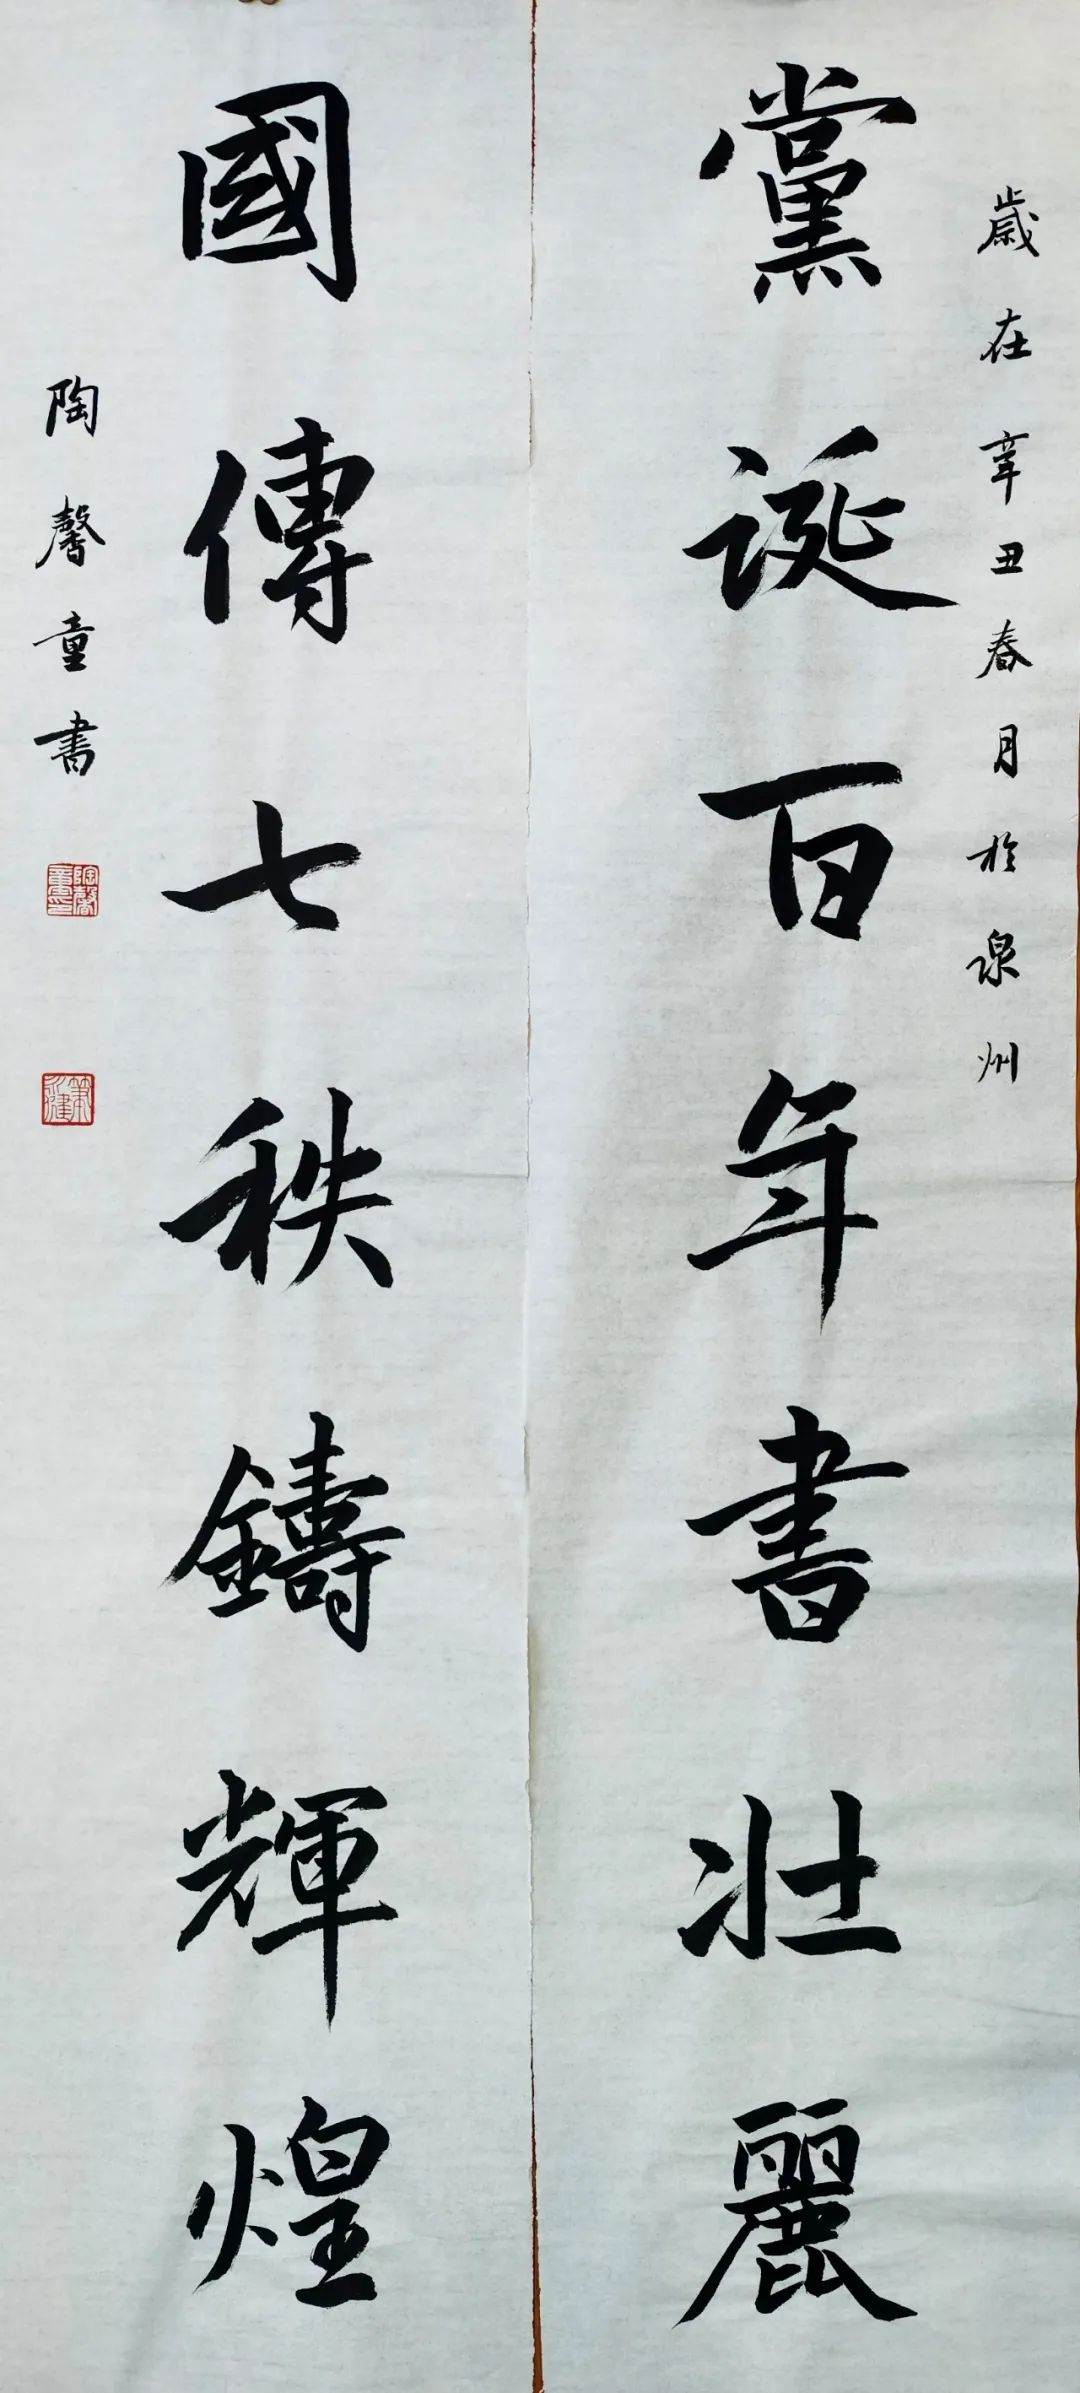 歲在辛丑春月於泉州
黨誕百年書壯麗
國傳七秩鑄輝煌
陶馨童書
陶馨童印